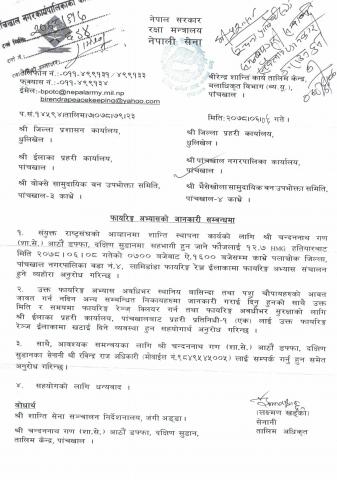 नेपाल सरकार
रक्षा मन्त्रालय
नेपाली सेना
टेलिफोन नं.:-०११-४९९१३१, ४९९१३३
फ्याक्स नं.:-०११-४९९१३४
ईमेल:-bpotc@nepalarmy.mil.np
birendrapeacekeeping@yahoo.com
वीरेन्द्र शान्ति कार्य तालिम केन्द्र,
पाँचखाल ।
मिति:२०७८।०६।०६ गते ।
श्री जिल्ला प्रशासन कार्यालय,
धुलिखेल ।
श्री जिल्ला प्रहरी कार्यालय,
धुलिखेल ।
श्री ईलाका प्रहरी कार्यालय,
पांचखाल ।
श्री पाँचखाल नगरपालिका कार्यालय,
पांचखाल ।
श्री सामुदायिक बन उपभोक्ता समिति,
पांचखाल-३ काभ्रे ।
श्री भैसेखोला सामुदायिक बन उपभोक्ता समिति,
पांचखाल-४ काभ्रे ।
फायरिङ्ग अभ्यासको जानकारी सम्बन्धमा
१. संयुक्त राष्ट्रसंघको आव्हानमा शान्ति स्थापना कार्यको लागि श्री चन्दननाथ गण
(शा.से.) आठौं डफ्फा, दक्षिण सुडानमा सहभागी हुन जाने फौजलाई १२.७ HMG हतियारबाट
मिति २०७८।०६।०८ गतेको ०७०० बजेबाट ऐ.१६०० बजेसम्म काभ्रे पलाञ्चोक जिल्ला,
पांचखाल नगरपालिका वडा नं.४, लामिडांडा फायरिङ्ग रेञ्ज ईलाकामा फायरिङ्ग अभ्यास संचालन
हुने व्यहोरा अनुरोध गरिन्छ ।
२. उक्त फायरिङ्ग अभ्यास अवधिभर स्थानिय बासिन्दा तथा पशु चौपायाहरुको आवत
जावत गर्न नदिन अन्य सम्बन्धित निकायहरुमा जानकारी गराई दिनु हुनको साथै उक्त
मिति र समयमा फायरिङ्ग रेञ्ज क्लियर गर्न तथा फायरिङ्ग अवधिभर सुरक्षाको लागी
श्री ईलाका प्रहरी कार्यालय, पांचखालबाट प्रहरी प्रतिनिधी-१ (एक) लाई उक्त फायरिङ्ग
रेञ्ज ईलाकामा खटाई दिने व्यवस्था हुन सहयोगार्थ अनुरोध गरिन्छ ।
३. साथै, आवश्यक समन्वयका लागि श्री चन्दननाथ गण (शा.से.) आठौं डफ्फा, दक्षिण
सुडानका सेनानी श्री रविन्द्र राज अधिकारी (मोबाईल नं.९८४९५४५००५) लाई सम्पर्क गर्नु हुन समेत
अनुरोध गरिन्छ ।
४. सहयोगको लागि धन्यवाद ।
बोधार्थ
श्री शान्ति सेना सञ्चालन निर्देशनालय, जंगी अड्डा ।
श्री चन्दननाथ गण (शा.से.) आठौं डफ्फा, दक्षिण सुडान,
तालिम केन्द्र, पांचखाल ।
सेनानी
तालिम अधिकृत